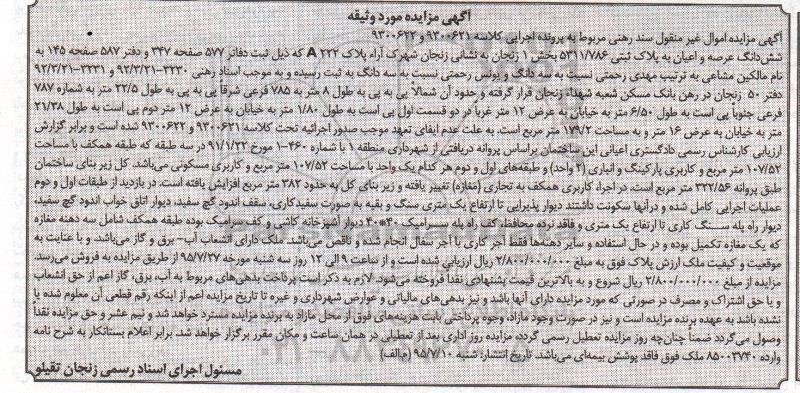 آگهی مزایده مورد وثیقه
آگهی مزایده اموال غیر منقول سند رهنی مربوط به پرونده اجرایی کلاسه ۹۳۰۰۶۲۱ و ۹۳۰۰۶۲۲
شش‌دانگ عرصه و اعیان به پلاک ثبتی ۵۳۱۱/۷۸۶ بخش ۱ زنجان به نشانی زنجان شهرک آراء پلاک ۲۲۲ A که ذیل ثبت دفاتر ۵۷۷ صفحه ۳۴۷ و دفتر ۵۸۷ صفحه ۱۴۵ به
نام مالکین مشاعی به ترتیب مهدی رحمتی نسبت به سه دانگ و یونس رحمتی نسبت به سه دانگ به ثبت رسیده و به موجب اسناد رهنی ۳۲۳۰-۹۲/۳/۲۱ و ۳۲۳۱-۹۲/۳/۲۱
دفتر ۵۰ زنجان در رهن بانک مسکن شعبه شهداء زنجان قرار گرفته و حدود آن شمالاً پی به پی به طول ۸ متر به ۷۸۵ فرعی شرقاً پی به پی به طول ۲۲/۵ متر به شماره ۷۸۷
فرعی جنوباً پی است به طول ۶/۵۰ متر به خیابان به عرض ۱۲ متر غرباً در دو قسمت اول پی است به طول ۱/۸۰ متر به خیابان به عرض ۱۲ متر دوم پی است به طول ۲۱/۳۸
متر به خیابان به عرض ۱۶ متر و به مساحت ۱۷۹/۲ متر مربع است. به علت عدم ایفای تعهد موجب صدور اجرائیه تحت کلاسه ۹۳۰۰۶۲۱ و ۹۳۰۰۶۲۲ شده است و برابر گزارش
ارزیابی کارشناس رسمی دادگستری اعیانی این ساختمان براساس پروانه دریافتی از شهرداری منطقه ۱ با شماره ۴۶۰-۱ مورخ ۹۱/۱/۲۲ در سه طبقه که طبقه همکف با مساحت
۱۰۷/۵۲ متر مربع و کاربری پارکینگ و انباری (۲ واحد) و طبقه‌های اول و دوم هر کدام یک واحد با مساحت ۱۰۷/۵۲ متر مربع و کاربری مسکونی می‌باشد. کل زیر بنای ساختمان
طبق پروانه ۳۲۲/۵۶ متر مربع است. در اجرا، کاربری همکف به تجاری (مغازه) تغییر یافته و زیر بنای کل به حدود ۳۸۲ متر مربع افزایش یافته است. در بازدید از طبقات اول و دوم
عملیات اجرایی کامل شده و در آنها سکونت داشتند دیوار پذیرایی تا ارتفاع یک متری سنگ و بقیه به صورت سفیدکاری، سقف اندود گچ سفید، دیوار اتاق خواب اندود گچ سفید،
دیوار راه پله سنگ کاری تا ارتفاع یک متری و فاقد نرده محافظ، کف راه پله سرامیک ۴۰*۴۰ دیوار آشپزخانه کاشی و کف سرامیک بوده طبقه همکف شامل سه دهنه مغازه
که یک مغازه تکمیل بوده و در حال استفاده و سایر دهنه‌ها فقط آجر کاری با آجر سفال انجام شده و ناقص می‌باشد. ملک دارای انشعاب آب- برق و گاز می‌باشد. و با عنایت به
موقعیت و کیفیت ملک ارزش پلاک فوق به مبلغ ۲/۸۰۰/۰۰۰/۰۰۰ ریال ارزیابی شده است و از ساعت ۹ الی ۱۲ روز سه شنبه مورخه ۹۵/۷/۲۷ از طریق مزایده به فروش می‌رسد.
مزایده از مبلغ ۲/۸۰۰/۰۰۰/۰۰۰ ریال شروع و به بالاترین قیمت پیشنهادی نقداً فروخته می‌شود. لازم به ذکر است پرداخت بدهی‌های مربوط به آب، برق، گاز اعم از حق انشعاب
و یا حق اشتراک و مصرف در صورتی که مورد مزایده دارای آنها باشد و نیز بدهی‌های مالیاتی و عوارض شهرداری و غیره تا تاریخ مزایده اعم از اینکه رقم قطعی آن معلوم شده یا
نشده باشد به عهده برنده مزایده است و نیز در صورت وجود مازاد، وجوه پرداختی بابت هزینه‌های فوق از محل مازاد به برنده مزایده مسترد خواهد شد و نیم عشر و حق مزایده نقداً
وصول می‌گردد ضمناً چنان‌چه روز مزایده تعطیل رسمی گردد، مزایده روز اداری بعد از تعطیلی در همان ساعت و مکان مقرر برگزار خواهد شد. برابر اعلام بستانکار به شرح نامه
وارده ۸۵۰۰۳۷۴۰ ملک فوق فاقد پوشش بیمه‌ای می‌باشد. تاریخ انتشار: شنبه ۹۵/۷/۱۰ (م.الف)
مسئول اجرای اسناد رسمی زنجان تقیلو